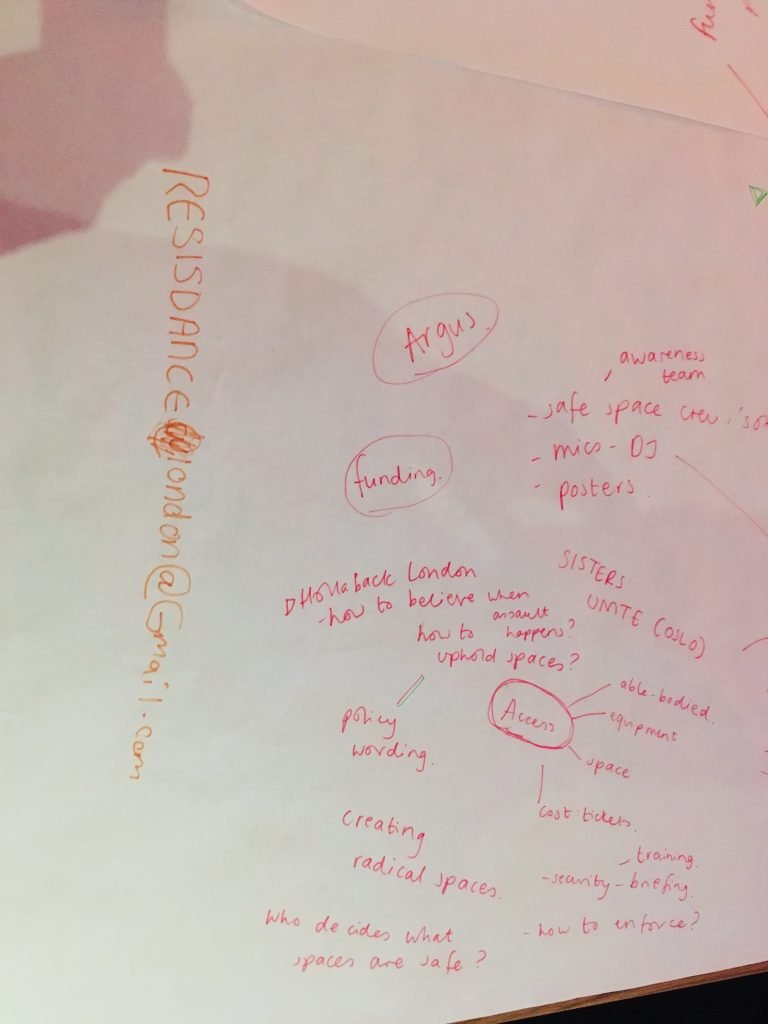 RESISDANCE london@Gmail.com
fun
Argus.
awareness
team
- safe space crew,
- mics - DJ
- posters.
funding.
SISTERS
UNITE (OSLO)
Hollaback London
- how to believe when
assault
how to happens?
uphold spaces?
Access
able-bodied.
equipment
space
cost tickets.
policy
wording.
creating
radical spaces.
training.
- security - briefing.
- how to enforce?
who decides what
spaces are safe?